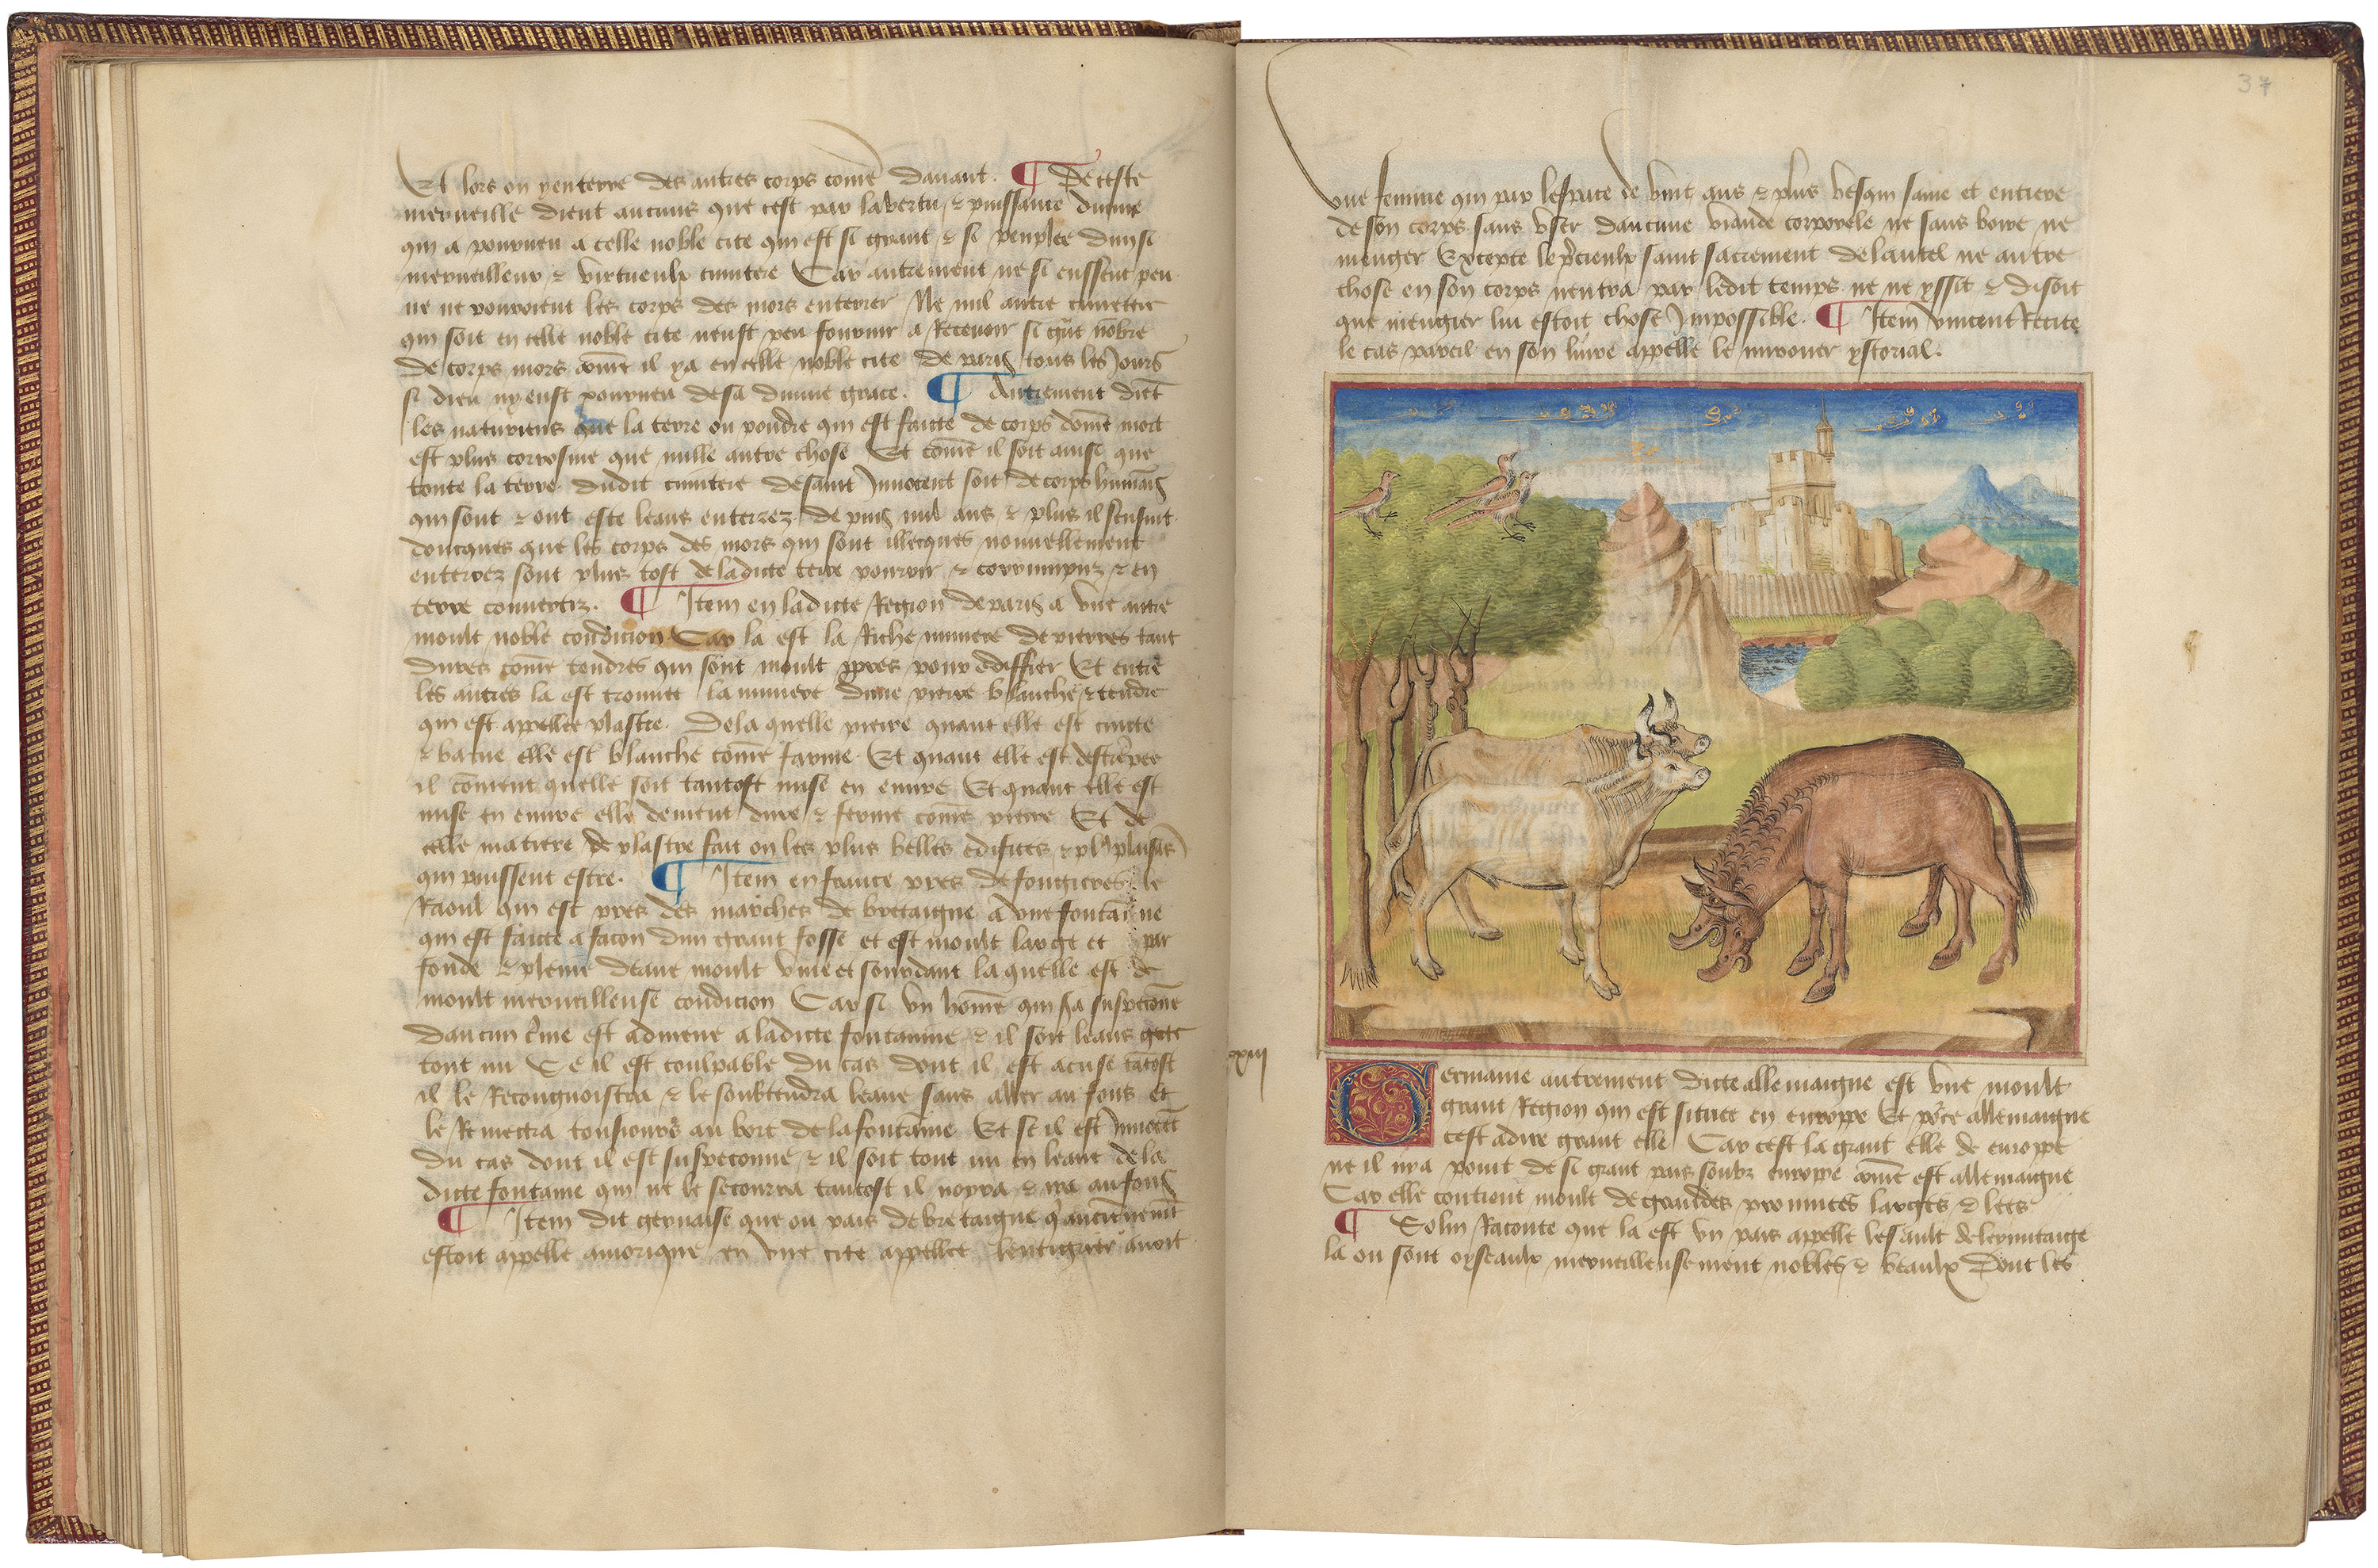 Et lors on y enterre des autres corps come davant. ¶ De ceste
merveille dient aucuns que cest par la vertu & puissance divine
qui a pourveu a celle noble cite qui est si grant & si peuplee dun si
merveilleux & virtueulx cimitere Car autrement ne si eussent peu
ne ne pourroient les corps des mors enterrer Ne nul autre cimettere
qui soit en celle noble cite neust peu fournir a Recevoir si grat nobre
de corps mors come il ya en celle noble cite de paris tous les Jours
si dieu ny eust pourveu de sa divine grace. ¶ Autrement diet
les naturiens que la terre ou poudre qui est faicte de corps dome mort
est plus corrosive que nulle autre chose Et come il soit ainsi que
toute la terre dudit cimitere de saint Innocent soit de corps humais
qui sont & ont este leans enterrez de puis mil ans & plus il sensuit
doncques que les corps des mors qui sont illecques nouvellement
enterrez sont plus tost de ladicte terre pourrir & corrumpuz & en
terre convertiz. ¶ Item en ladicte Region de paris a une autre
moult noble condicion Car la est la Riche miniere de pierres tant
dures come tendres qui sont moult ppres pour ediffier Et entre
les autres la est trouvee la miniere dune pierre blanche & tendre
qui est appellee plastre. De la quelle pierre quant elle est cuicte
& batue elle est blanche come farine. Et quant elle est destrepee
il covient quelle soit tantost mise en euvre Et quant elle est
mise en euvre elle devient dure & ferme come pierre Et de
celle matiere de plastre fait on les plus belles edifices & pl9 plaisas
qui puissent estre. ¶ Item en france pres de fougieres le
Raoul qui est pres des marches de bretaigne a une fontaine
qui est faicte a facon dun grant fosse et est moult large et par
fonde & pleine deaue moult vive et sourdant la quelle est de
moult merveilleuse condicion Car si un home qui sa suspeconne
daucun crime est admene a ladicte fontainne & il soit leans gete
tout nu Se il est coulpable du cas dont il est acuse tatost
il le Recongnoistra & le soubtendra leaue sans aller au fons et
le Remectra tousiours au bort de la fontaine Et se il est Innocet
du cas dont il est suspeconne & il soit tout nu en leaue de la
dicte fontaine qui ne le secourra tantost il noyra & ira au fons
¶ Item dit gervaise que ou pais de bretaigne q anciennemt
estoit appelle amorique en une cite appellee avoit
une femme qui par lespace de vint ans & plus vesqui saine et entiere
de son corps sans user daucune viande corporele ne sans boire ne
menger Excepte le precieulx saint sacrement de lautel ne autre
chose en son corps nentra par ledit temps ne ne yssit & disoit
que mengier lui estoit chose Impossible. ¶ Item vincent Recite
le cas pareil en son livre appelle le mirouer ystorial.
xxiii
Germanie autrement dicte allemaigne est une moult
grant Region qui est situee en europpe Et pose allemaigne
cest adire grant elle Car cest la grant elle de europpe
ne il nya point de si grant pais soubz europpe come est allemaigne
Car elle contient moult de grandes provinces larges & lees
¶ Solin Raconte que la est un pais appelle lesault
la ou sont oyseaulx merveilleusement nobles & beaulx Dont les
37